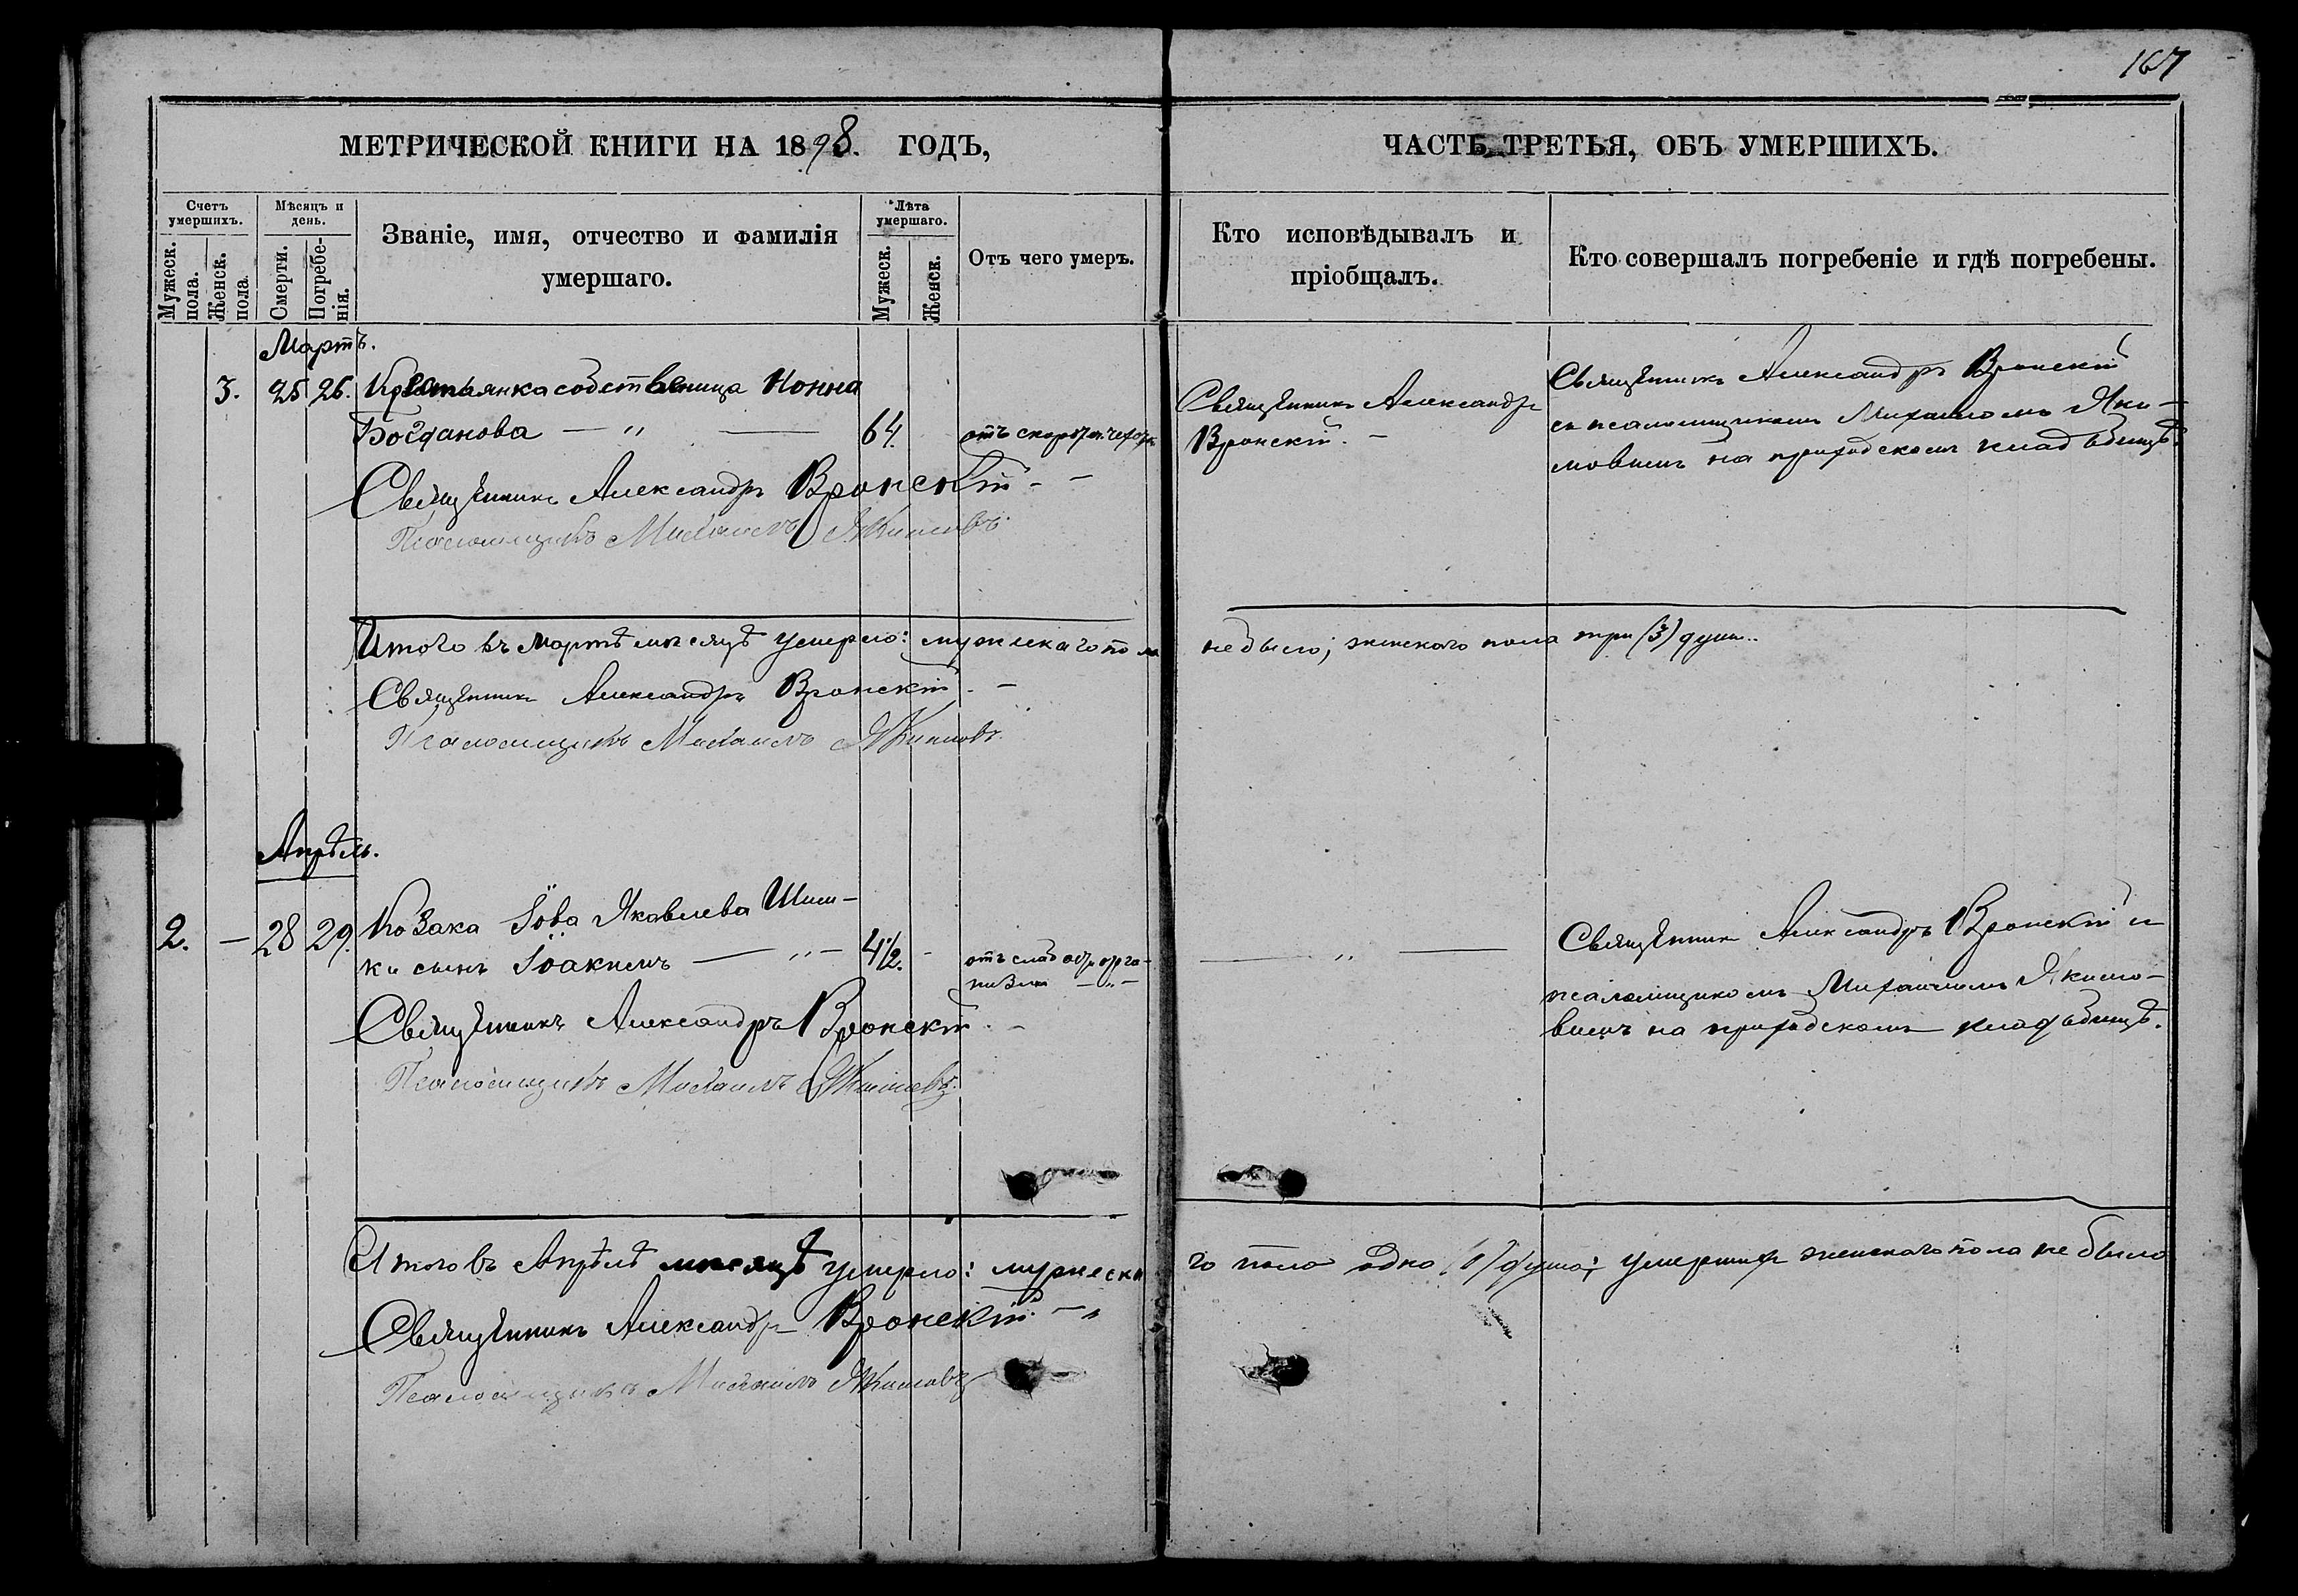 167
МЕТРИЧЕСКОЙ КНИГИ НА 1898. ГОДЪ,
ЧАСТЬ ТРЕТЬЯ, ОБЪ УМЕРШИХЪ.
Счетъ умершихъ.
Мѣсяцъ и день.
Званіе, имя, отчество и фамилія умершаго.
Лѣта умершаго.
Отъ чего умеръ.
Кто исповѣдывалъ и пріобщалъ.
Кто совершалъ погребеніе и гдѣ погребены.
Мужеск. пола.
Женск. пола.
Смерти.
Погребенія.
Мужеск.
Женск.
Мартъ.
3. 25 26. Крестьянка собственица Нонна
Богданова — " — 64.
Священникъ Александръ
Вронскій. —
Священникъ Александръ Вронскій
съ псаломщикомъ Михаиломъ Яки-
мовымъ на приходскомъ кладбищѣ.
Священникъ Александръ Вронскій - -
Псаломщикъ Михаилъ Якимовъ.
Итого въ Мартѣ мѣсяцѣ умерло: мужскаго пола не было; женскаго пола три (3) души.
Священникъ Александръ Вронскій. —
Псаломщикъ Михаилъ Якимовъ.
Апрѣль.
2. — 28 29. Козака Іова Яковлева Шиш-
ки сынъ Іоакимъ — " — 4½. -
отъ слаб
— " —
Священникъ Александръ Вронскій и
псаломщикомъ Михаиломъ Якимо-
вымъ на приходскомъ кладбищѣ.
Священникъ Александръ Вронскій. -
Псаломщикъ Михаилъ Якимовъ.
Итого въ Апрѣлѣ мѣсяцѣ умерло: мужеска го пола одна (1) душа; умершихъ женскаго пола не было
Священникъ Александръ Вронскій. - "
Псаломщикъ Михаилъ Якимовъ